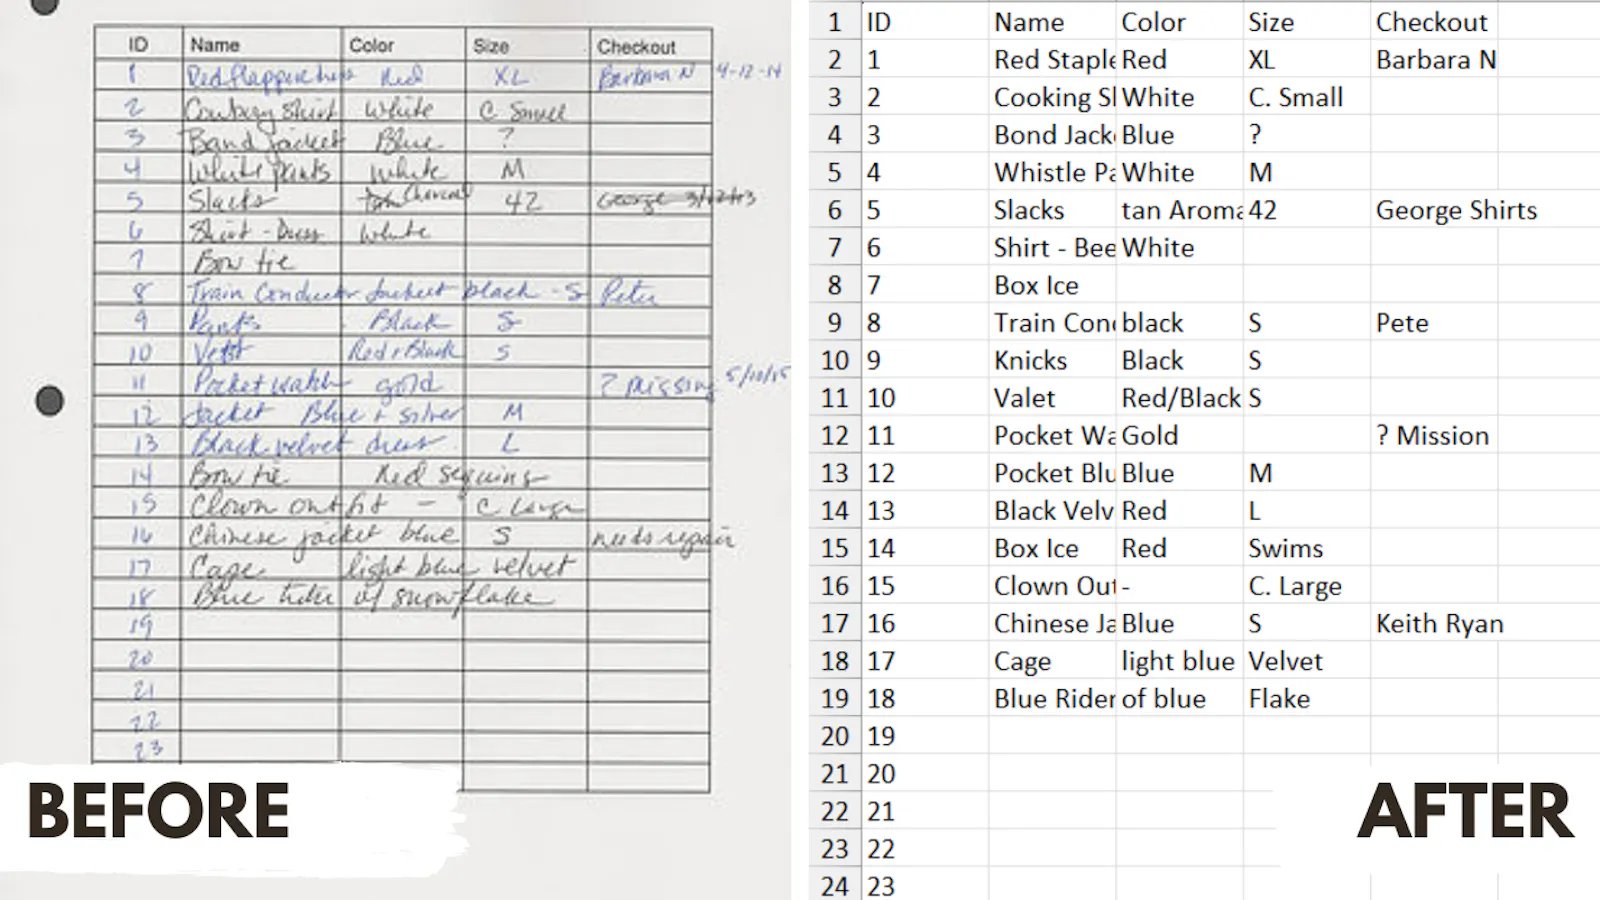 ID Name Color Size Checkout
1 Red flapper dress Red XL Barbara N 4-12-14
2 Cowboy Shirt White C Small
3 Band jacket Blue ?
4 White pants white M
5 Slacks tan Charcoal 42 George 3/12/13
6 Shirt - Dress White
7 Bow tie
8 Train Conductor Jacket black - S Peter
9 Pants Black S
10 Vest Red + Black S
11 Pocket watch gold ? missing 5/10/15
12 Jacket Blue + silver M
13 Black velvet dress L
14 Bow tie Red sequins
15 Clown outfit - C Large
16 Chinese jacket blue S needs repair
17 Cape light blue velvet
18 Blue of snowflake
19
20
21
22
23
BEFORE
1 ID Name Color Size Checkout
2 1 Red Staple Red XL Barbara N
3 2 Cooking Sl White C. Small
4 3 Bond Jack Blue ?
5 4 Whistle Pa White M
6 5 Slacks tan Aroma 42 George Shirts
7 6 Shirt - Bee White
8 7 Box Ice
9 8 Train Con black S Pete
10 9 Knicks Black S
11 10 Valet Red/Black S
12 11 Pocket Wa Gold ? Mission
13 12 Pocket Blu Blue M
14 13 Black Velv Red L
15 14 Box Ice Red Swims
16 15 Clown Out - C. Large
17 16 Chinese Ja Blue S Keith Ryan
18 17 Cage light blue Velvet
19 18 Blue Rider of blue Flake
20 19
21 20
22 21
23 22
24 23
AFTER